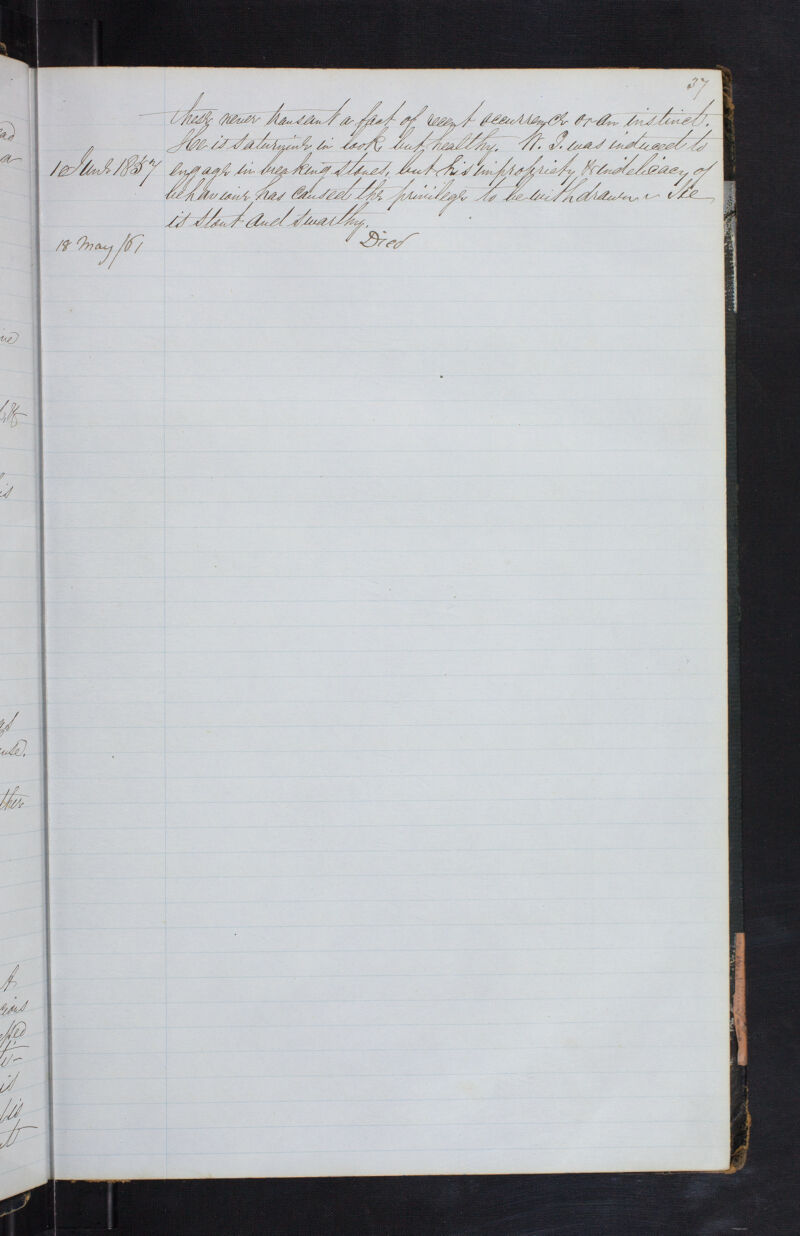 37
these never transcend a fact of recent occurrence or an instinct.
He is saturnine in look, but healthy. W. I. was induced to
10 June 1857 engage in breaking stones, but his impropriety & indelicacy of
behaviour has caused the privilege to be withdrawn. He
is stout and swarthy.
18 May /61 Died